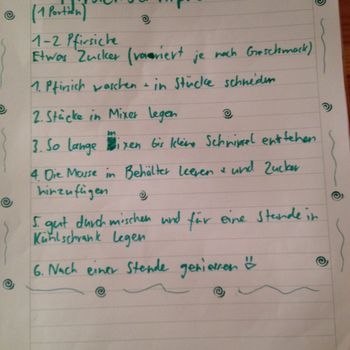 (1 Portion)
1-2 Pfirsiche
Etwas Zucker (variiert je nach Geschmack)
1. Pfirsich waschen + in Stücke schneiden
2. Stücke in Mixer legen
3. So lange mixen bis kleine Schnipsel entstehen
4. Die Masse in Behälter leeren + und Zucker
hinzufügen
5. gut durchmischen und für eine Stunde in
Kühlschrank legen
6. Nach einer Stunde geniessen